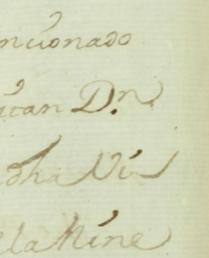 ncionado
itan Dn.
dha Vi
ella Nine